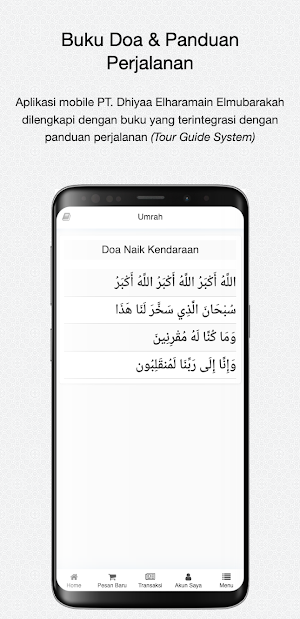 Buku Doa & Panduan
Perjalanan
Aplikasi mobile PT. Dhiyaa Elharamain Elmubarakah
dilengkapi dengan buku yang terintegrasi dengan
panduan perjalanan (Tour Guide System)
Umrah
Doa Naik Kendaraan
اللَّهُ أَكْبَرُ اللَّهُ أَكْبَرُ اللَّهُ أَكْبَرُ
سُبْحَانَ الَّذِي سَخَّرَ لَنَا هَذَا
وَمَا كُنَّا لَهُ مُقْرِنِينَ
وَإِنَّا إِلَى رَبِّنَا لَمُنقَلِبُون
Home Pesan Baru Transaksi Akun Saya Menu